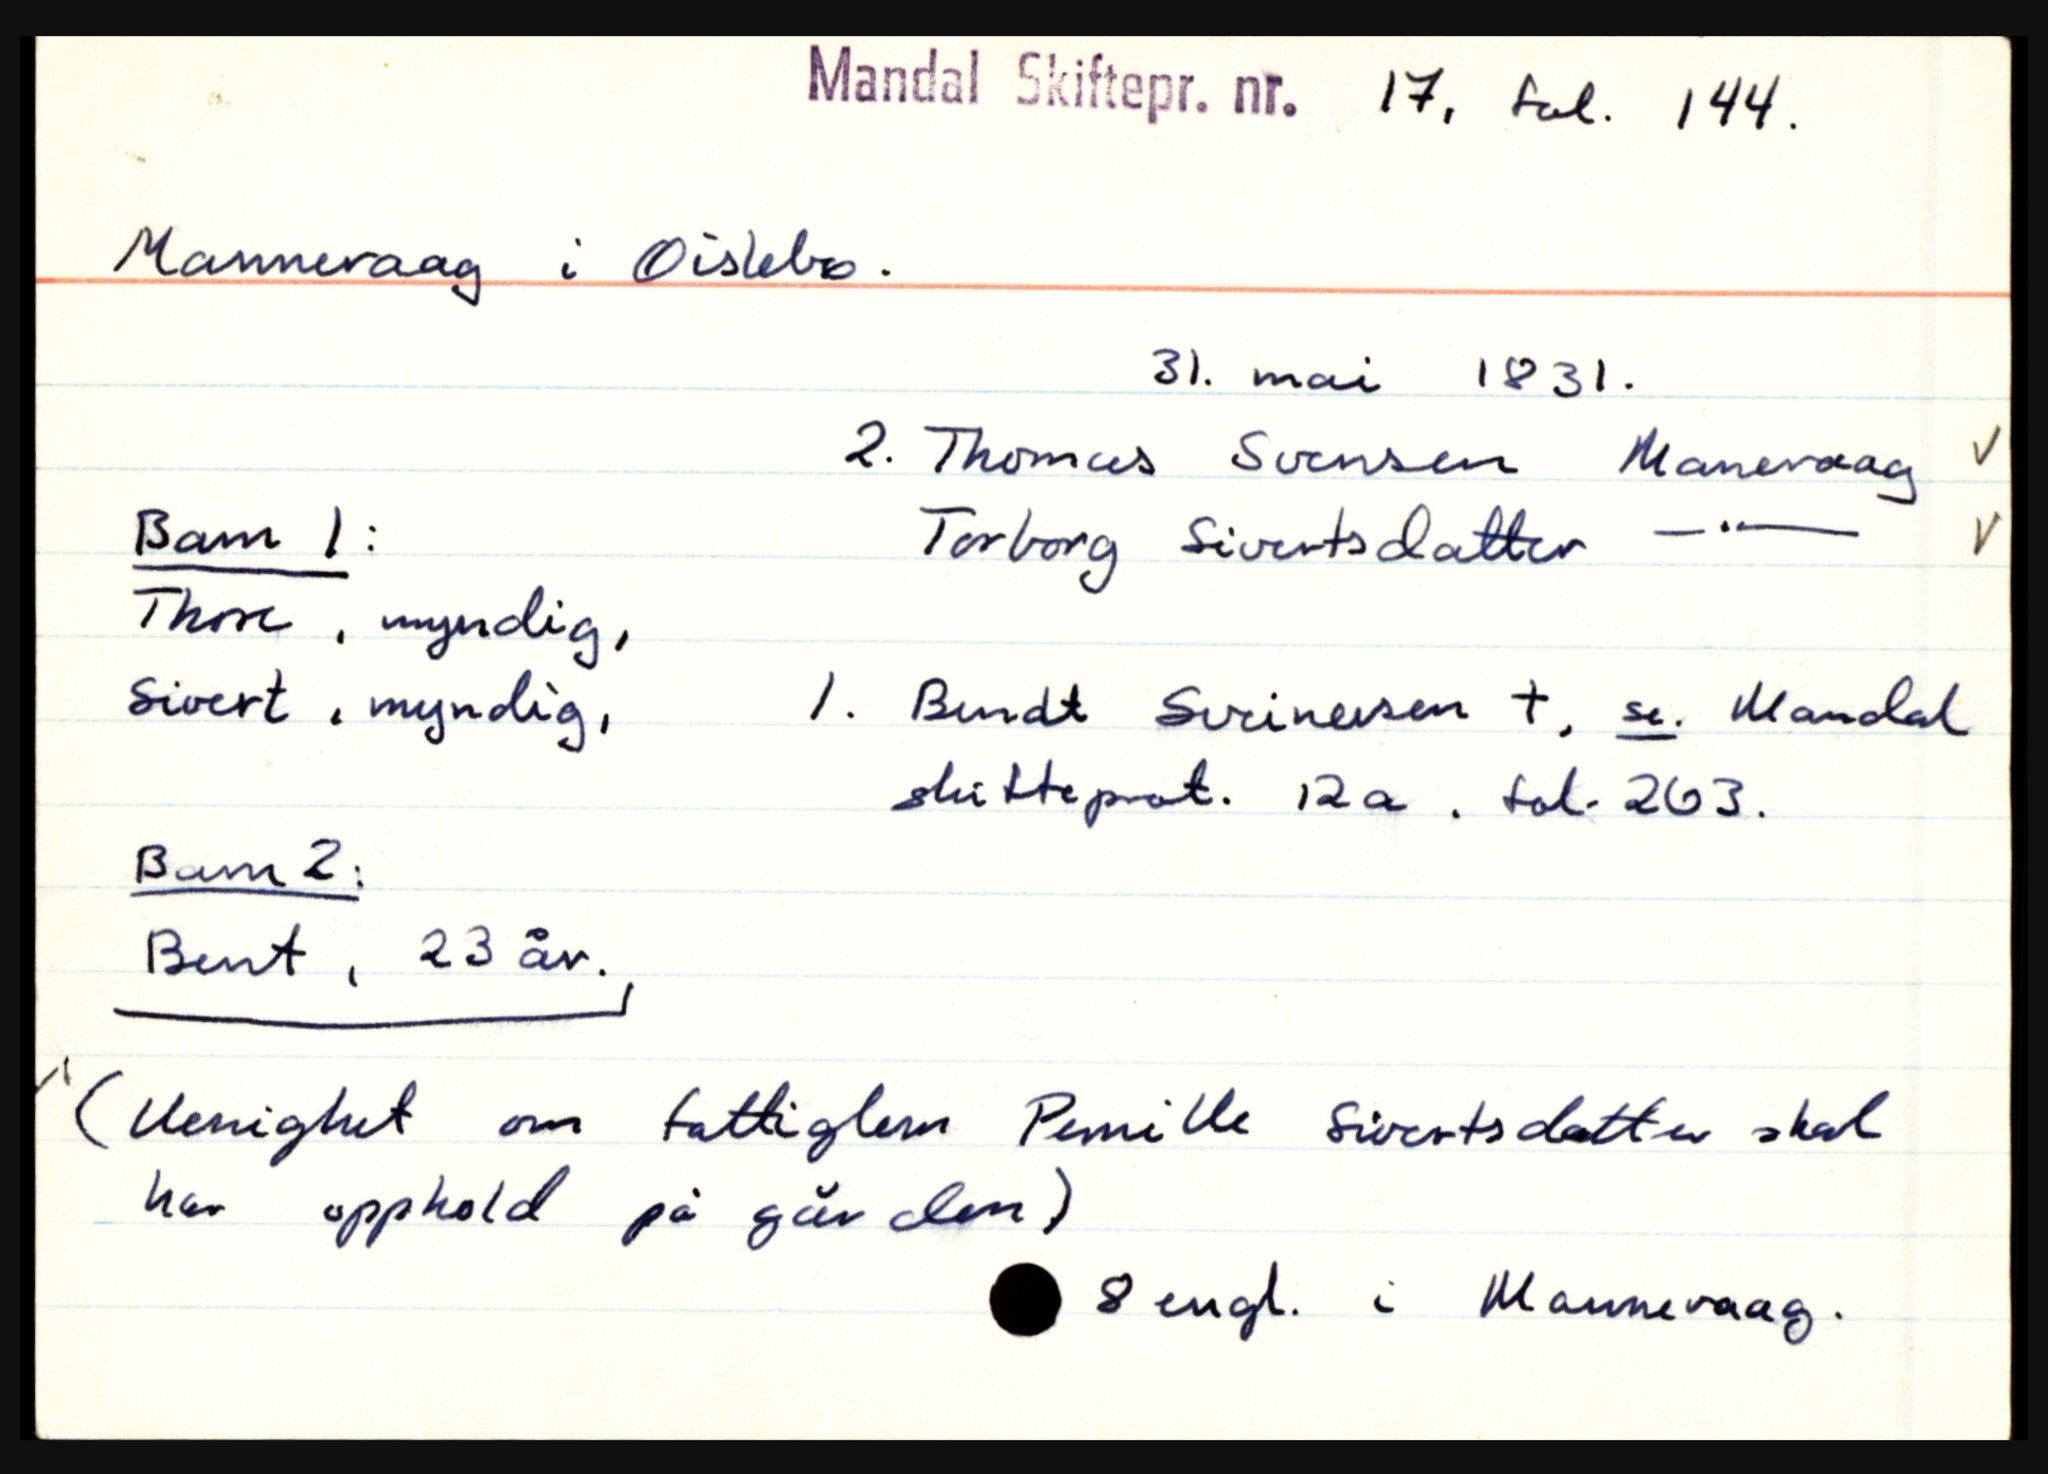 Mandal Skiftepr. nr. 17, fol. 144.
Mannevaag i Öislebo.
31. mai 1831.
2. Thomas Svensen Manevaag √
Torborg Sivertsdatter —"— √
Barn 1:
Thore, myndig,
Sivert, myndig,
1. Bendt Sveinersen †, se. Mandal
skifteprot. 12a. fol. 263.
Barn 2:
Bent, 23 år.
(Uenighet om fattiglem Pernille Sivertsdatter skal
har opphold på gården)
8 engl. i Mannevaag.